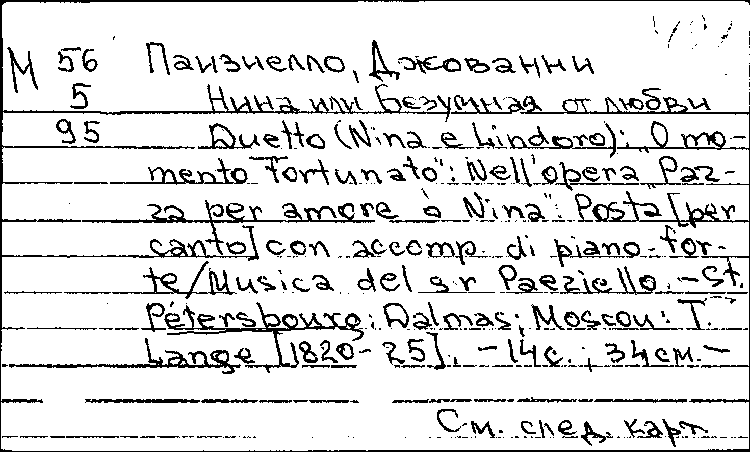 М 56 Паизиелло, Джованни
5 Нина или Безумная от любви
95 Duetto (Nina e Lindoro): "O mo-
mento fortunato": Nell'opera "Paz-
za per amore o Nina". Posta [per
canto] con accomp. di piano-for-
te/Musica del sr Paeziello. - St.
Pétersbourg: Dalmas; Moscou: T.
Lange, [1820-25]. - 14 с.; 34 см. -
См. след. карт